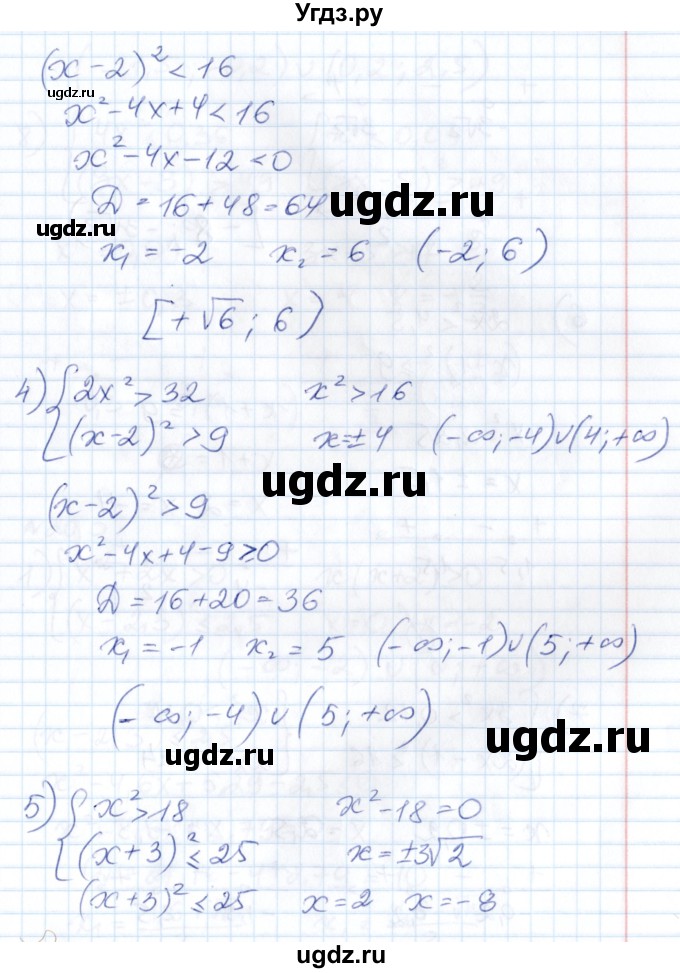 Угдз.ру
(x-2)² < 16
ugdz.ru
x²-4x+4<16
x²-4x-12<0
D = 16+48=64
ugdz.ru
ugdz.ru
x₁ = -2 x₂ = 6 (-2; 6)
[+√6; 6)
4) { 2x² > 32 x² > 16
(x-2)² > 9 x=±4 (-∞; -4)∪(4; +∞)
ugdz.ru
(x-2)² > 9
x²-4x+4-9≥0
D = 16+20=36
x₁ = -1 x₂ = 5 (-∞; -1)∪(5; +∞)
(-∞; -4)∪(5; +∞)
ugdz.ru
ugdz.ru
5) { x² > 18 x²-18=0
(x+3)² ≤ 25 x=±3√2
(x+3)² ≤ 25 x=2 x=-8
ugdz.ru